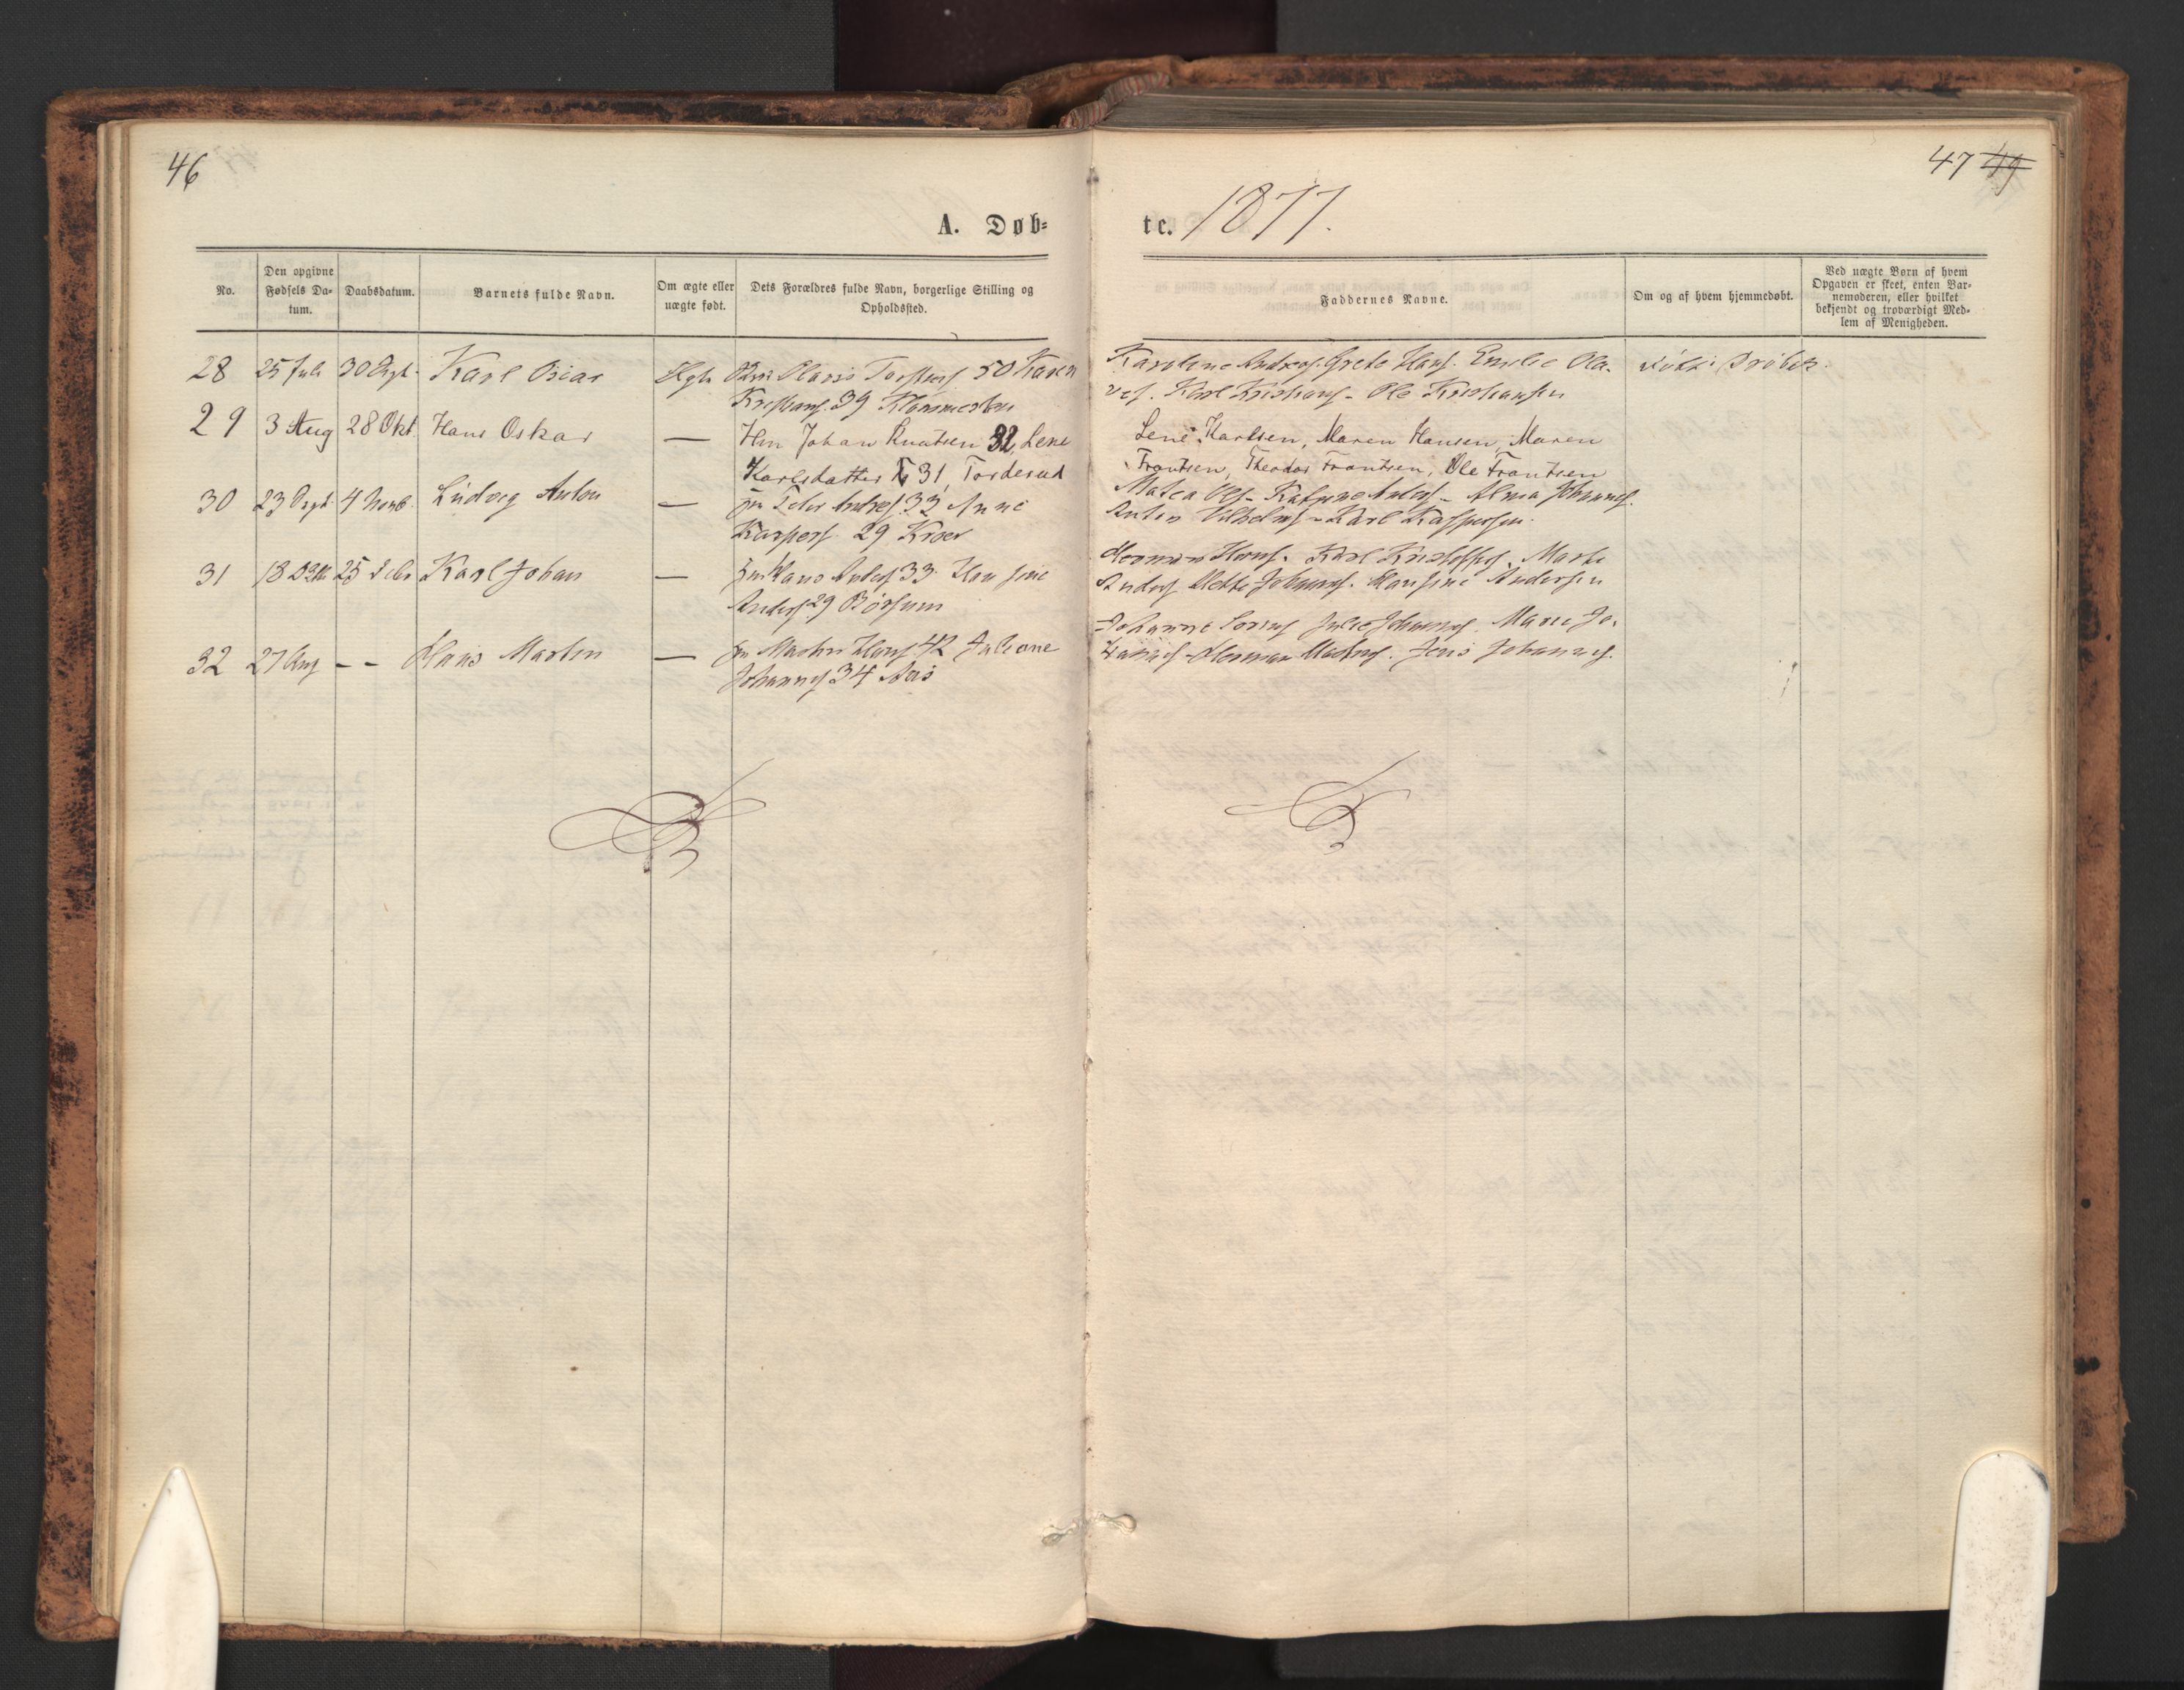 46
47 49
A. Døb-
te. 1877.
No.
Den opgivne Fødsels Da-
tum.
Daabsdatum.
Barnets fulde Navn.
Om ægte eller
uægte født.
Dets Forældres fulde Navn, borgerlige Stilling og
Opholdssted.
Faddernes Navne.
Om og af hvem hjemmedøbt.
Ved uægte Børn af hvem
Opgaven er skeet, enten Bar-
nemoderen, eller hvilket
bekjendt og troværdigt Med-
lem af Menigheden.
28 25 Juli 30 Karl Oscar 50 Karen
39
Karoline Grete Hans. Emilie Ola-
ves. Karl Kristians - Ole Kristiansen
29 3 Aug 28 Okt. Hans Oskar — Johan Knutsen 32, Lene
Karlsdatter 31, Torderud
Lene Karlsen, Maren Hansen, Maren
Frantsen, Theodor Frantsen, Ole Frantsen
30 23 4 Novb. Ludvig Anton — Peter Andres. 33 Anne
Kaspers. 29 Kroer
Johannes.
Anton - Karl Kaspersen.
31 18 25 Karl Johan — Hans Anders 33. Hansine
Anders 29
Herman Hans. Karl Kristoffers. Marte
Anders Johannes. Hansine Andersen
32 27 Aug - - Hans Martin — Martin Hans 42 Juliane
Johannes 34 Aas
Johanne Julie Johannes. Marie Jo-
Herman Jens Johannes.